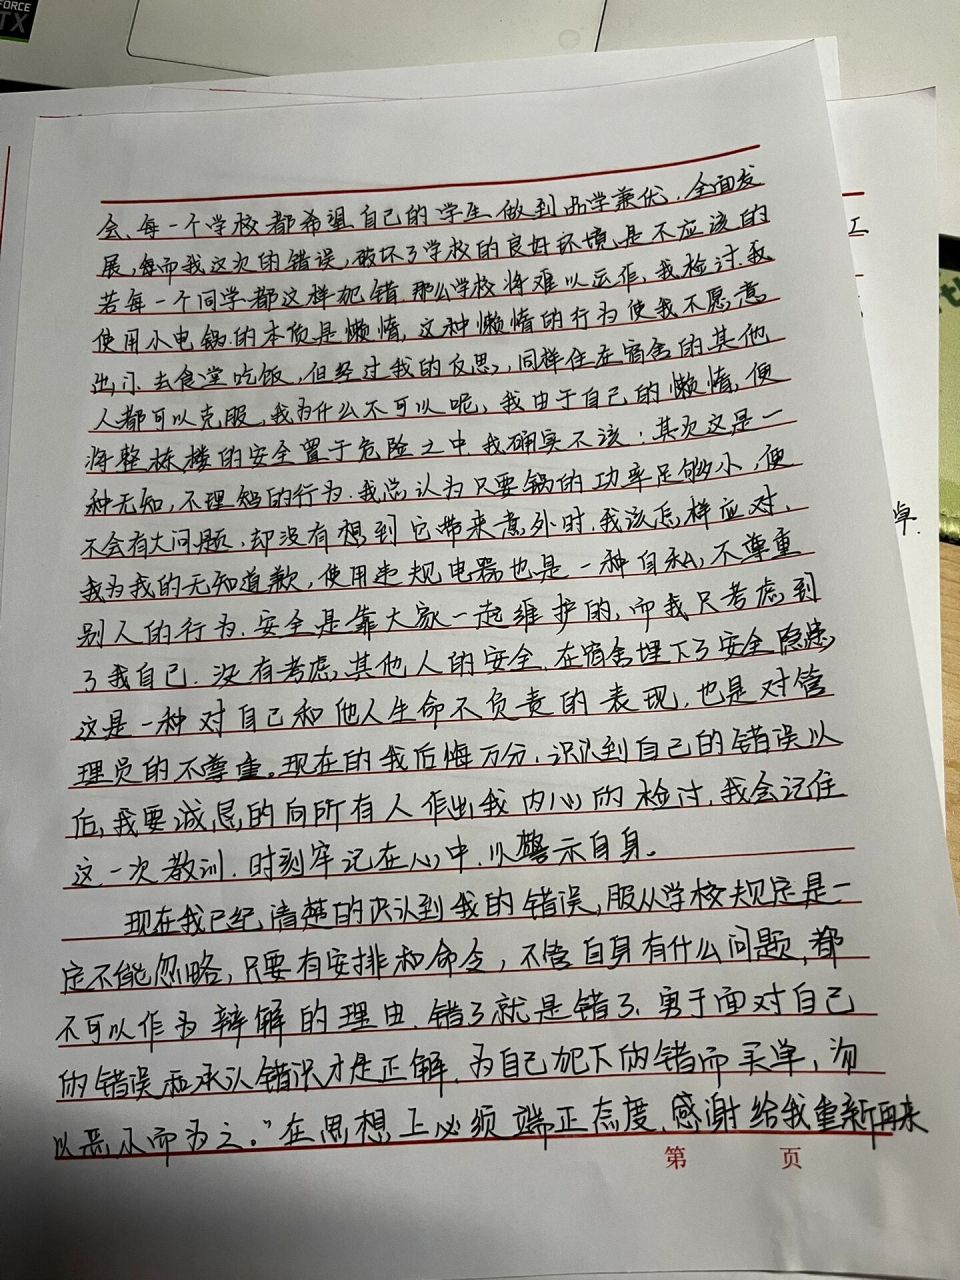 FORCE
TX
会、每一个学校都希望自己的学生做到品学兼优,全面发
展,每而我这次的错误,破坏了学校的良好环境,是不应该的
若每一个同学都这样犯错.那么学校将难以运作,我检讨.我
使用小电锅的本质是懒惰,这种懒惰的行为使我不愿意
出门去食堂吃饭,但经过我的反思,同样住在宿舍的其他
人都可以克服,我为什么不可以呢,我由于自己的懒惰,便
将整栋楼的安全置于危险之中.我确实不该.其次这是一
种无知,不理智的行为.我总认为只要锅的功率足够小,便
不会有大问题,却没有想到它带来意外时,我该怎样应对,
我为我的无知道歉,使用违规电器也是一种自私,不尊重
别人的行为.安全是靠大家一起维护的,而我只考虑到
了我自己.没有考虑其他人的安全.在宿舍埋下了安全隐患,
这是一种对自己和他人生命不负责的表现,也是对管
理员的不尊重。现在的我后悔万分,识认到自己的错误以
后,我要诚恳的向所有人作出我内心的检讨.我会记住
这一次教训.时刻牢记在心中,以警示自身。
现在我已经清楚的识认到我的错误,服从学校规定是一
定不能忽略,只要有安排和命令,不管自身有什么问题,都
不可以作为辩解的理由.错了就是错了.勇于面对自己
的错误和承认错误才是正解.为自己犯下的错而买单,勿
以恶小而为之。"在思想上必须端正态度.感谢给我重新再来
第 页
工